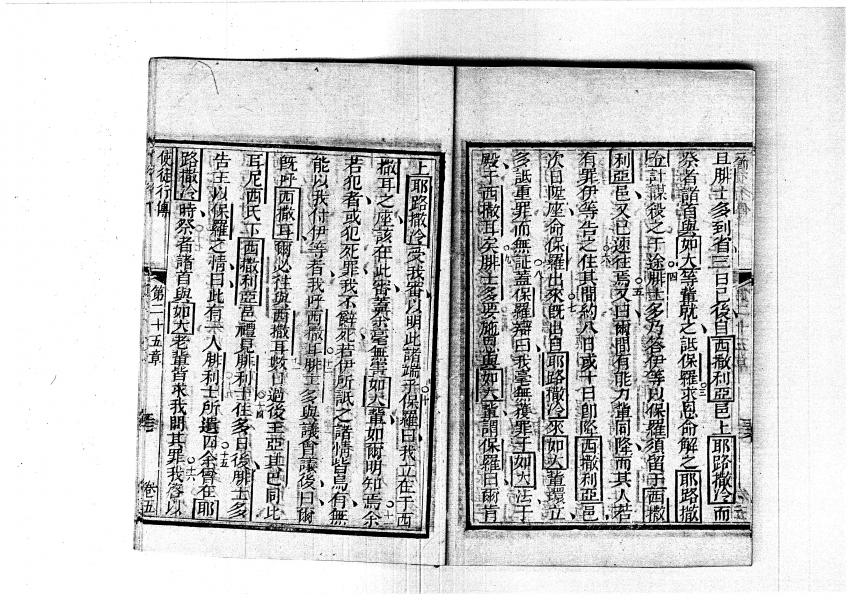 且腓士多到省三日已後自西撒利亞邑上耶路撒冷而
祭者諸首與如大等輩就之詆保羅求恩命解之耶路撒
冷計謀殺之于途腓士多乃答伊等以保羅須留于西撒
利亞邑又已速往焉又曰爾間有能力輩同降而其人若
有罪伊等告之住其間約八日或十日卽降西撒利亞邑
次日陞座命保羅出來旣出自耶路撒冷來如大輩環立
多詆重罪而無証蓋保羅辯曰我毫無獲罪于如大法于
殿于西撒耳矣腓士多要施恩與如大輩謂保羅曰爾肯
上耶路撒冷受我審以明此諸端乎保羅曰我立在于西
撒耳之座該在此審蓋余毫無害如大輩如爾明知焉余
若犯害或犯死罪我不辭死若伊所詆之諸情皆烏有無
能以我付伊等者我呼西撒耳腓士多與議會議後曰爾
旣呼西撒耳爾必往與西撒耳數日過後王亞其邑同比
耳尼西氏下西撒利亞邑禮見腓利士住多日後腓士多
告王以保羅之情曰此有一人腓利士所遺囚余曾在耶
路撒冷時祭者諸首與如大老輩皆求我問其罪我答以
使徒行傳 第二十五章 卷五